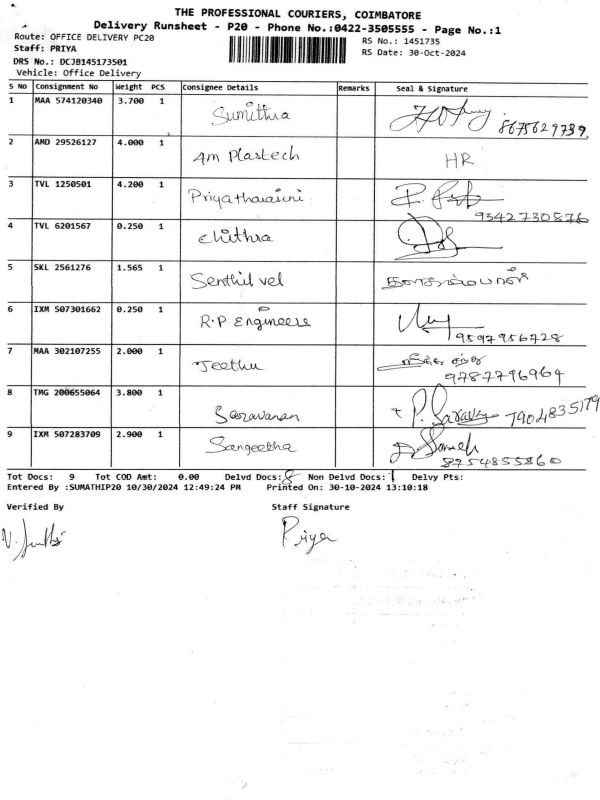 THE PROFESSIONAL COURIERS, COIMBATORE
Delivery Runsheet - P20 - Phone No.:0422-3505555 - Page No.:1
Route: OFFICE DELIVERY PC20
RS No.: 1451735
Staff: PRIYA
RS Date: 30-Oct-2024
DRS No.: DCJB145173501
Vehicle: Office Delivery
S No Consignment No Weight PCS Consignee Details Remarks Seal & Signature
1 MAA 574120340 3.700 1 Sumithra 8675629739
2 AMD 29526127 4.000 1 Am Plastech HR
3 TVL 1250501 4.200 1 Priyatharasini 9342730876
4 TVL 6201567 0.250 1 Chithra
5 SKL 2561276 1.565 1 Senthil vel
6 IXM 507301662 0.250 1 R.P Engineers 9597956728
7 MAA 302107255 2.000 1 Jeethu 9787796964
8 TMG 200655064 3.800 1 Saravanan P. Saravan 7904835179
9 IXM 507283709 2.900 1 Sangeetha 8754855860
Tot Docs: 9 Tot COD Amt: 0.00 Delvd Docs: 8 Non Delvd Docs: 1 Delvy Pts:
Entered By :SUMATHIP20 10/30/2024 12:49:24 PM Printed On: 30-10-2024 13:10:18
Verified By Staff Signature
Priya